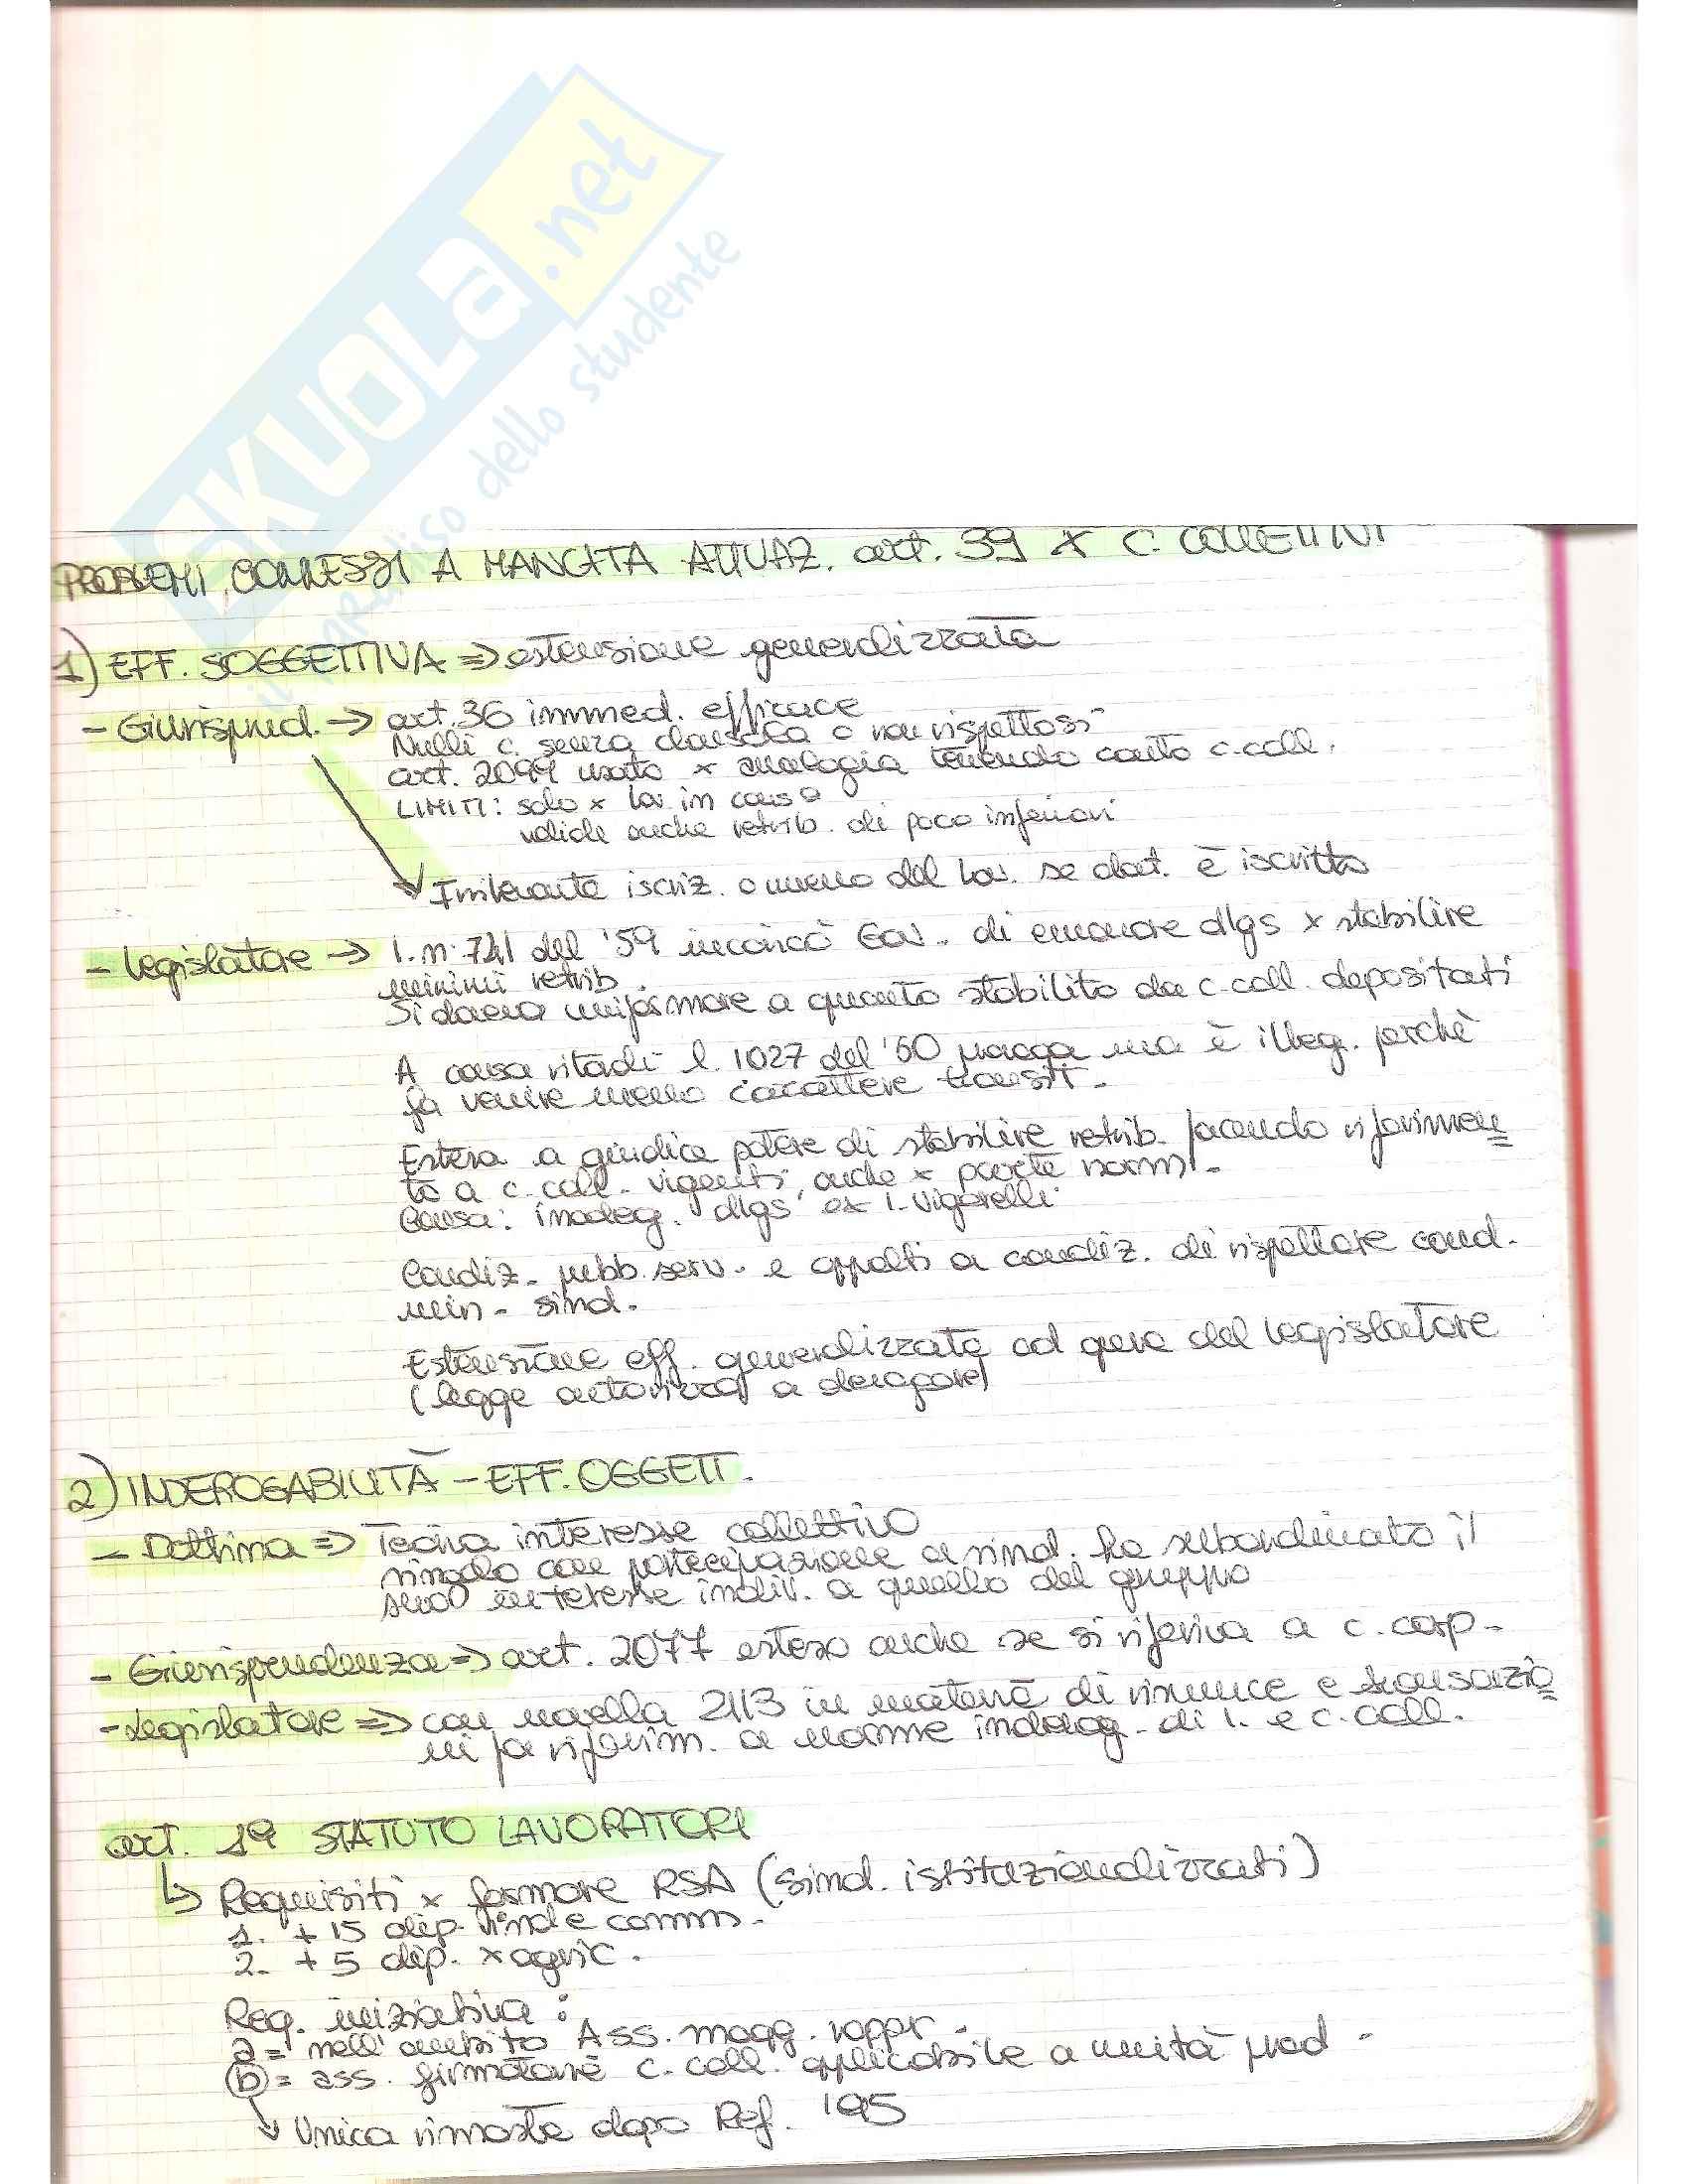 SKUOLa.net
il paradiso dello studente
PROBLEMI CONNESSI A MANCATA ATTUAZ. art. 39 x C. COLLETTIVI
1) EFF. SOGGETTIVA => estensione generalizzata
- Giurisprud. -> art. 36 immed. efficace
Nulli c. senza clausola o non rispettosi
art. 2099 usato x analogia tenendo conto c. coll.
LIMITI: solo x lav. in causa
valide anche retrib. di poco inferiori
Irrilevante iscriz. o meno del lav. se dat. è iscritto
- Legislatore -> l. n. 741 del '59 incaricò Gov. di emanare dlgs x stabilire
minimi retrib.
Si doveva uniformare a quanto stabilito da c. coll. depositati
A causa ritardi l. 1027 del '60 proroga ma è illeg. perchè
fa venire meno carattere transit.
Estesa a giudice potere di stabilire retrib. facendo riferimen
to a c. coll. vigenti anche x parte norm.
Causa: inadeg. dlgs ex l. Vigorelli
Condiz. pubb. serv. e appalti a condiz. di rispettare cond.
min. sind.
Estensione eff. generalizzata ad opera del legislatore
(legge autorizza a derogare)
2) INDEROGABILITÀ - EFF. OGGETT.
- Dottrina => Teoria interesse collettivo
singolo con partecipazione a sind. ha subordinato il
suo interesse indiv. a quello del gruppo
- Giurisprudenza => art. 2077 esteso anche se si riferiva a c. corp.
- Legislatore => con novella 2113 in materia di rinunce e transazio
ni fa riferim. a norme inderog. di l. e c. coll.
art. 19 STATUTO LAVORATORI
Requisiti x formare RSA (sind. istituzionalizzati)
1. + 15 dip. x ind e comm.
2. + 5 dip. x agric.
Req. iniziativa:
a = nell'ambito Ass. magg. rappr.
b = ass. firmatarie c. coll. applicabile a unità prod.
Unica rimasta dopo Ref. '95